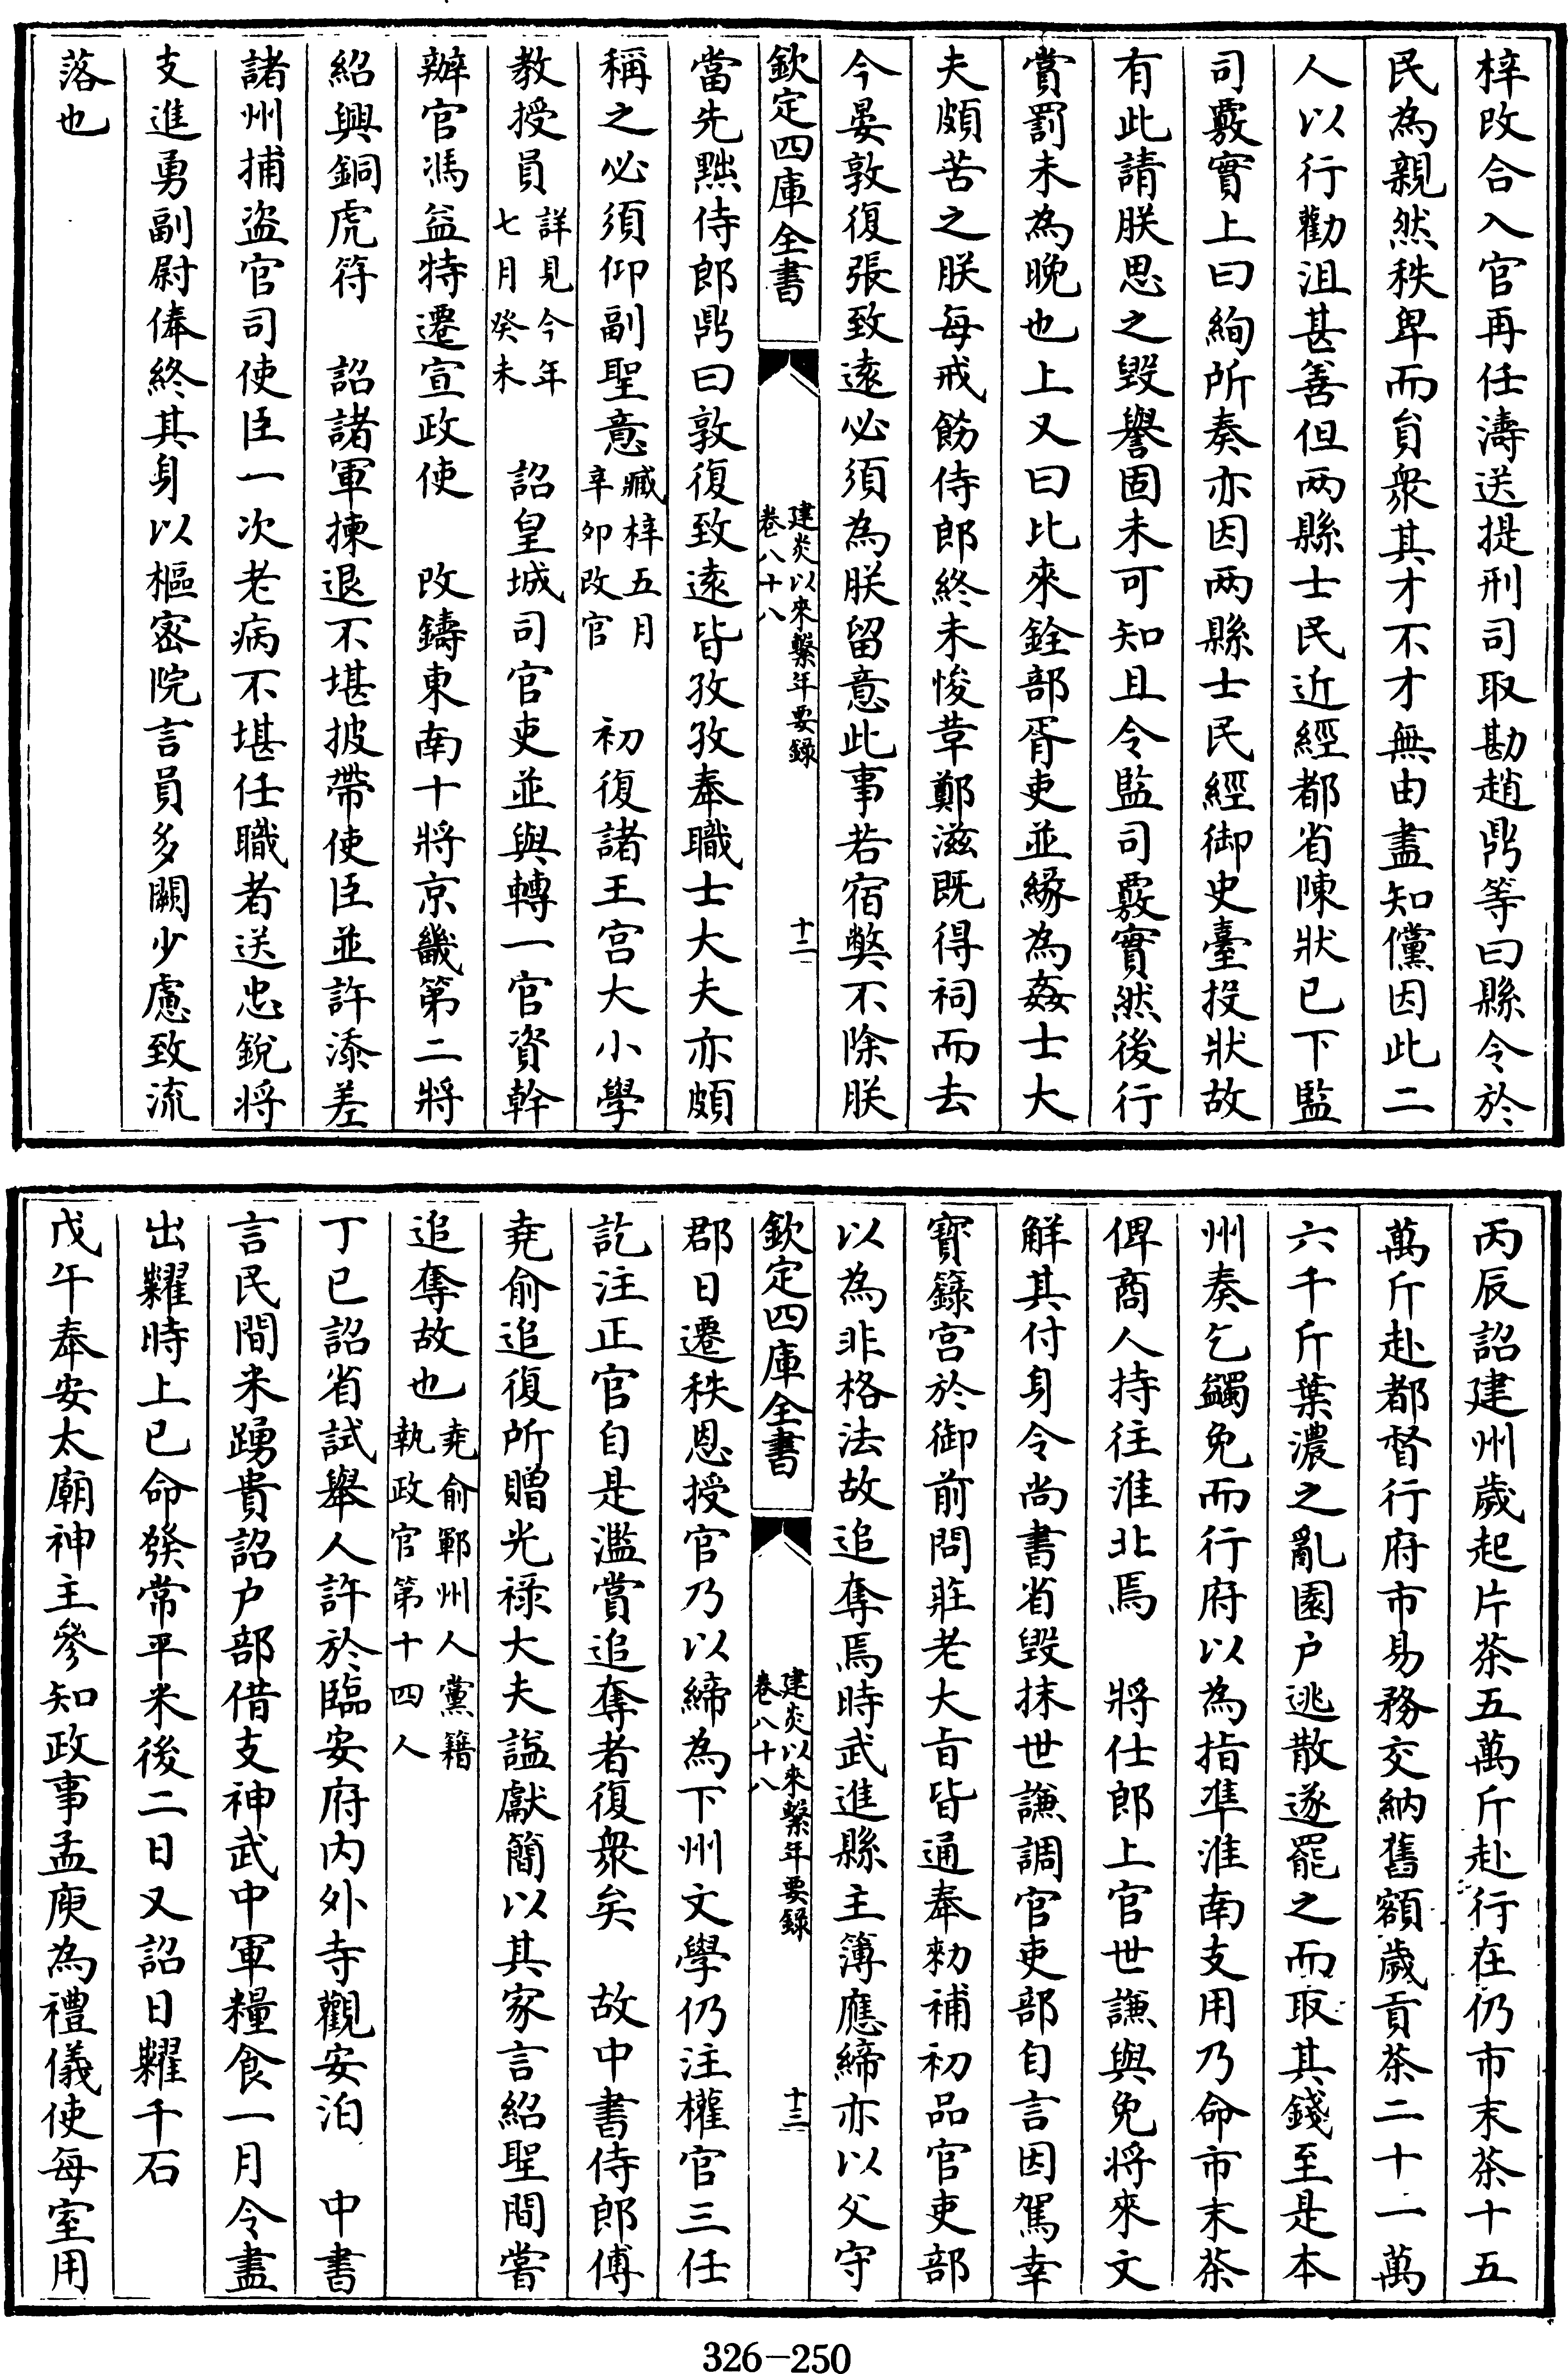 梓改合入官再任濤送提刑司取勘趙鼎等曰縣令於
民為親然秩卑而負衆其才不才無由盡知儻因此二
人以行勸沮甚善但两縣士民近經都省陳狀已下監
司覈實上曰絢所奏亦因两縣士民經御史臺投狀故
有此請朕思之毀譽固未可知且令監司覈實然後行
賞罰未為晚也上又曰比來銓部胥吏並緣為姦士大
夫頗苦之朕每戒飭侍郎終未悛韋鄭滋既得祠而去
今晏敦復張致遠必須為朕留意此事若宿弊不除朕
欽定四庫全書
建炎以來繫年要錄
卷八十八
十二
當先黜侍郎鼎曰敦復致遠皆孜孜奉職士大夫亦頗
稱之必須仰副聖意臧梓五月辛卯改官　初復諸王宫大小學
教授員詳見今年七月癸未　詔皇城司官吏並與轉一官資幹
辦官馮益特遷宣政使　改鑄東南十將京畿第二將
紹興銅虎符　詔諸軍揀退不堪披帶使臣並許添差
諸州捕盗官司使臣一次老病不堪任職者送忠銳將
支進勇副尉俸終其身以樞密院言員多闕少慮致流
落也
丙辰詔建州歲起片茶五萬斤赴行在仍市末茶十五
萬斤赴都督行府市易務交納舊額歲貢茶二十一萬
六千斤葉濃之亂園户逃散遂罷之而取其錢至是本
州奏乞蠲免而行府以為指準淮南支用乃命市末茶
俾商人持往淮北焉　將仕郎上官世謙與免將來文
解其付身令尚書省毀抹世謙調官吏部自言因駕幸
寳籙宫於御前問莊老大旨皆通奉勑補初品官吏部
以為非格法故追奪焉時武進縣主簿應締亦以父守
欽定四庫全書
建炎以來繫年要錄
卷八十八
十三
郡日遷秩恩授官乃以締為下州文學仍注權官三任
訖注正官自是濫賞追奪者復衆矣　故中書侍郎傅
堯俞追復所贈光禄大夫謚獻簡以其家言紹聖間嘗
追奪故也堯俞鄆州人黨籍執政官第十四人
丁巳詔省試舉人許於臨安府内外寺觀安泊　中書
言民間米踴貴詔户部借支神武中軍糧食一月令盡
出糶時上已命發常平米後二日又詔日糶千石
戊午奉安太廟神主參知政事孟庾為禮儀使每室用
326-250